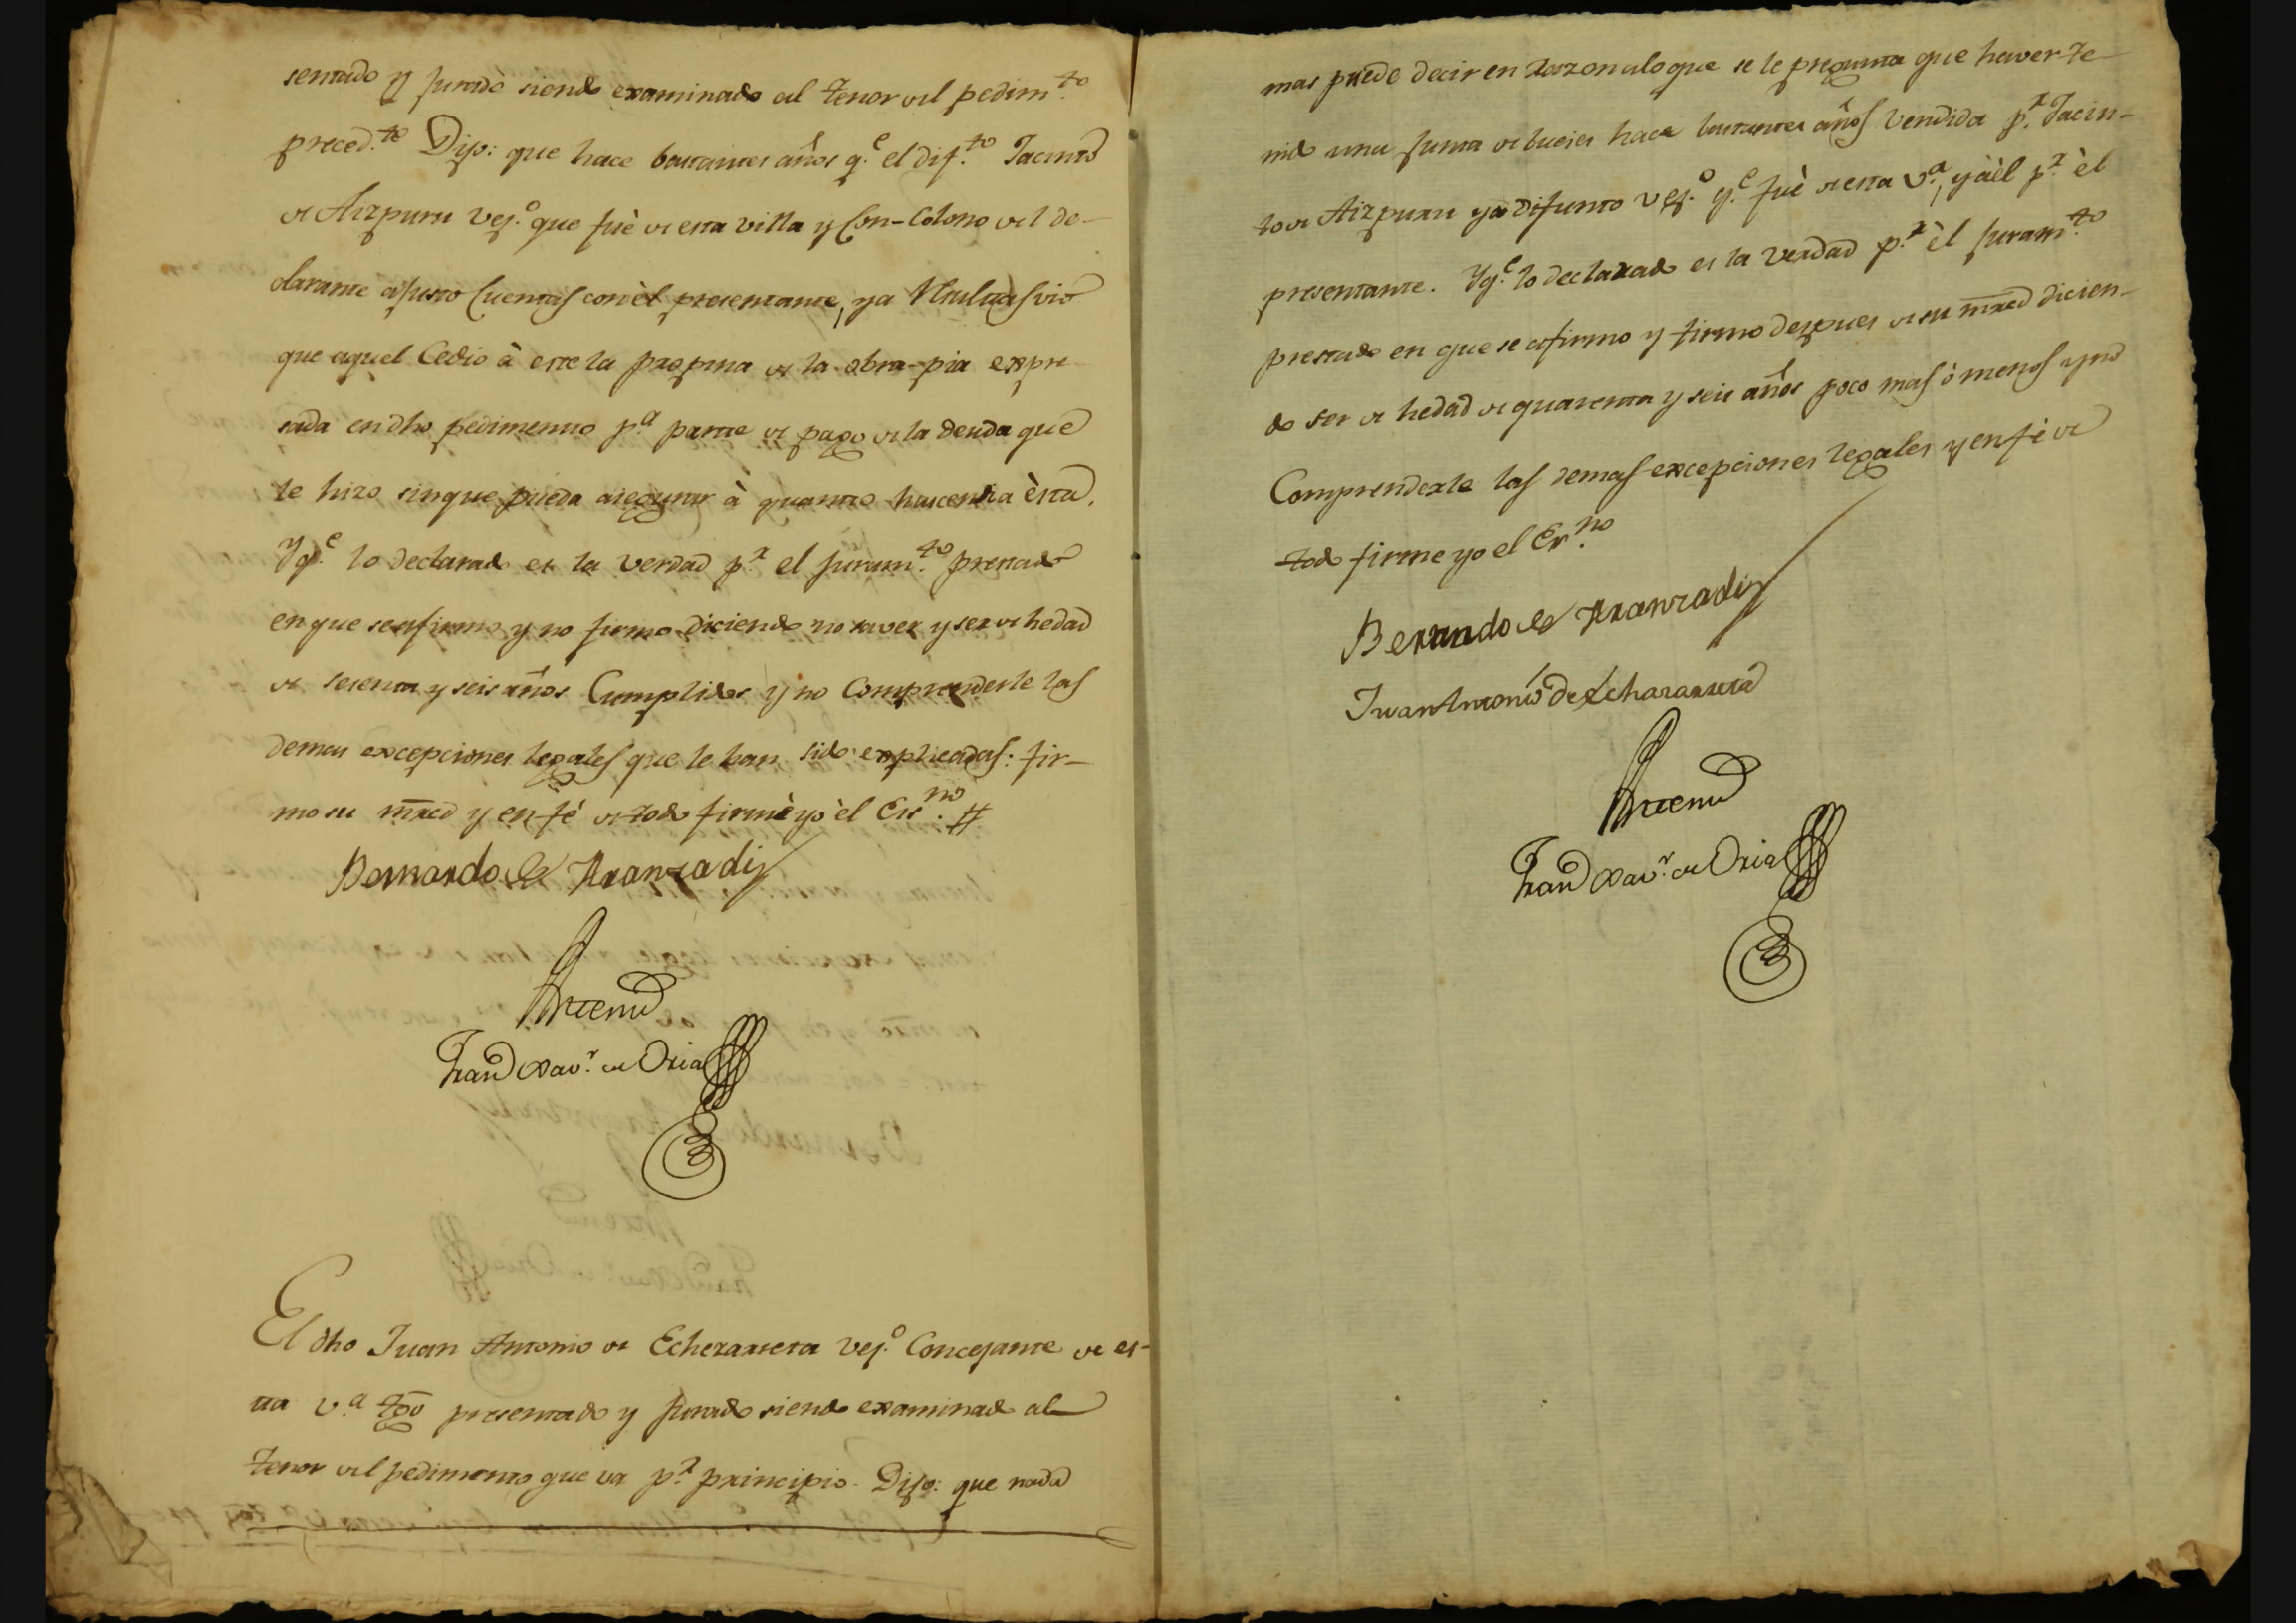 sentado y jurado siendo examinado al tenor del pedim.to
preced.te Dijo: que hace bastantes años q.e el dif.to Jacinto
de Aizpuru vez.o que fuè de esta villa y Con-Colono del de-
clarante ajusto Cuentas con èl presentante, y a resultas vio
que aquel Cedio à este la propina de la obra-pia expre-
sada en dho pedimento p.a parte de pago de la deuda que
le hizo sin que pueda asegurar à quanto hascendia èsta.
Y q.e lo declarado es la verdad p.r el juram.to prestado
en que se afirmo y no firmo diciendo no saver y ser de hedad
de sesenta y seis años Cumplidos y no Comprenderle las
demas excepciones legales que le han sido explicadas: fir-
mo su mrcd y en fé de todo firmè yo èl Esc.no #
Bernardo de Aranzadi
Antemi
Fran.co Xav.r de Oria
El dho Juan Antonio de Echezarreta vez.o Concejante de es-
ta v.a tgo presentado y jurado siendo examinado al
tenor del pedimento que va p.r principio. Dijo: que nada
mas puede decir en razon a lo que se le pregunta que haver te-
nido una junta de bueies hace bastantes años vendida p.r Jacin-
to de Aizpuru ya difunto vez.o q.e fuè de esta v.a, y à èl p.r èl
presentante. Y q.e lo declarado es la verdad p.r èl juram.to
prestado en que se afirmo y firmo despues de su mrcd dicien-
do ser de hedad de quarenta y seis años poco mas ò menos y no
Comprenderle las demas excepciones legales y en fé de
todo firme yo el Es.no
Bernardo de Aranzadi
Juan Antonio de Echazarreta
Antemi
Fran.co Xav.r de Oria